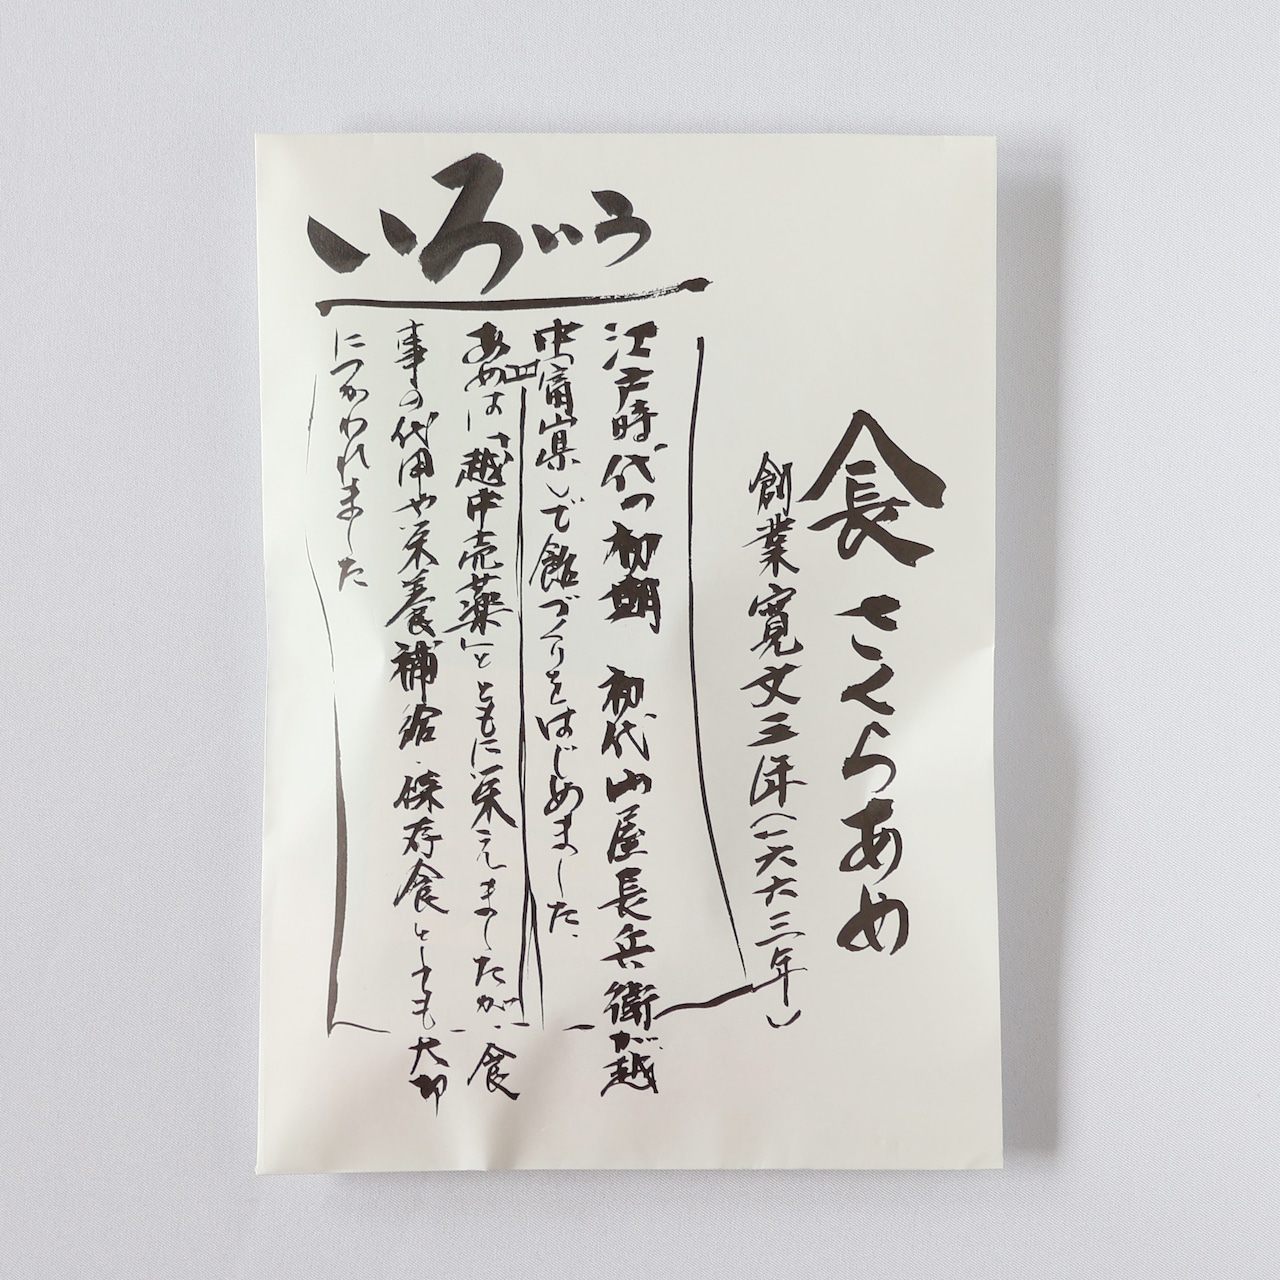 いろいう
長 さくらあめ
創業寛文三年(一六六三年)
江戸時代の初期 初代山屋長兵衛が越
中(富山県)で飴づくりをはじめました
あめは「越中売薬」とともに栄えましたが、食
事の代用や栄養補給・保存食としても大切
につかわれました